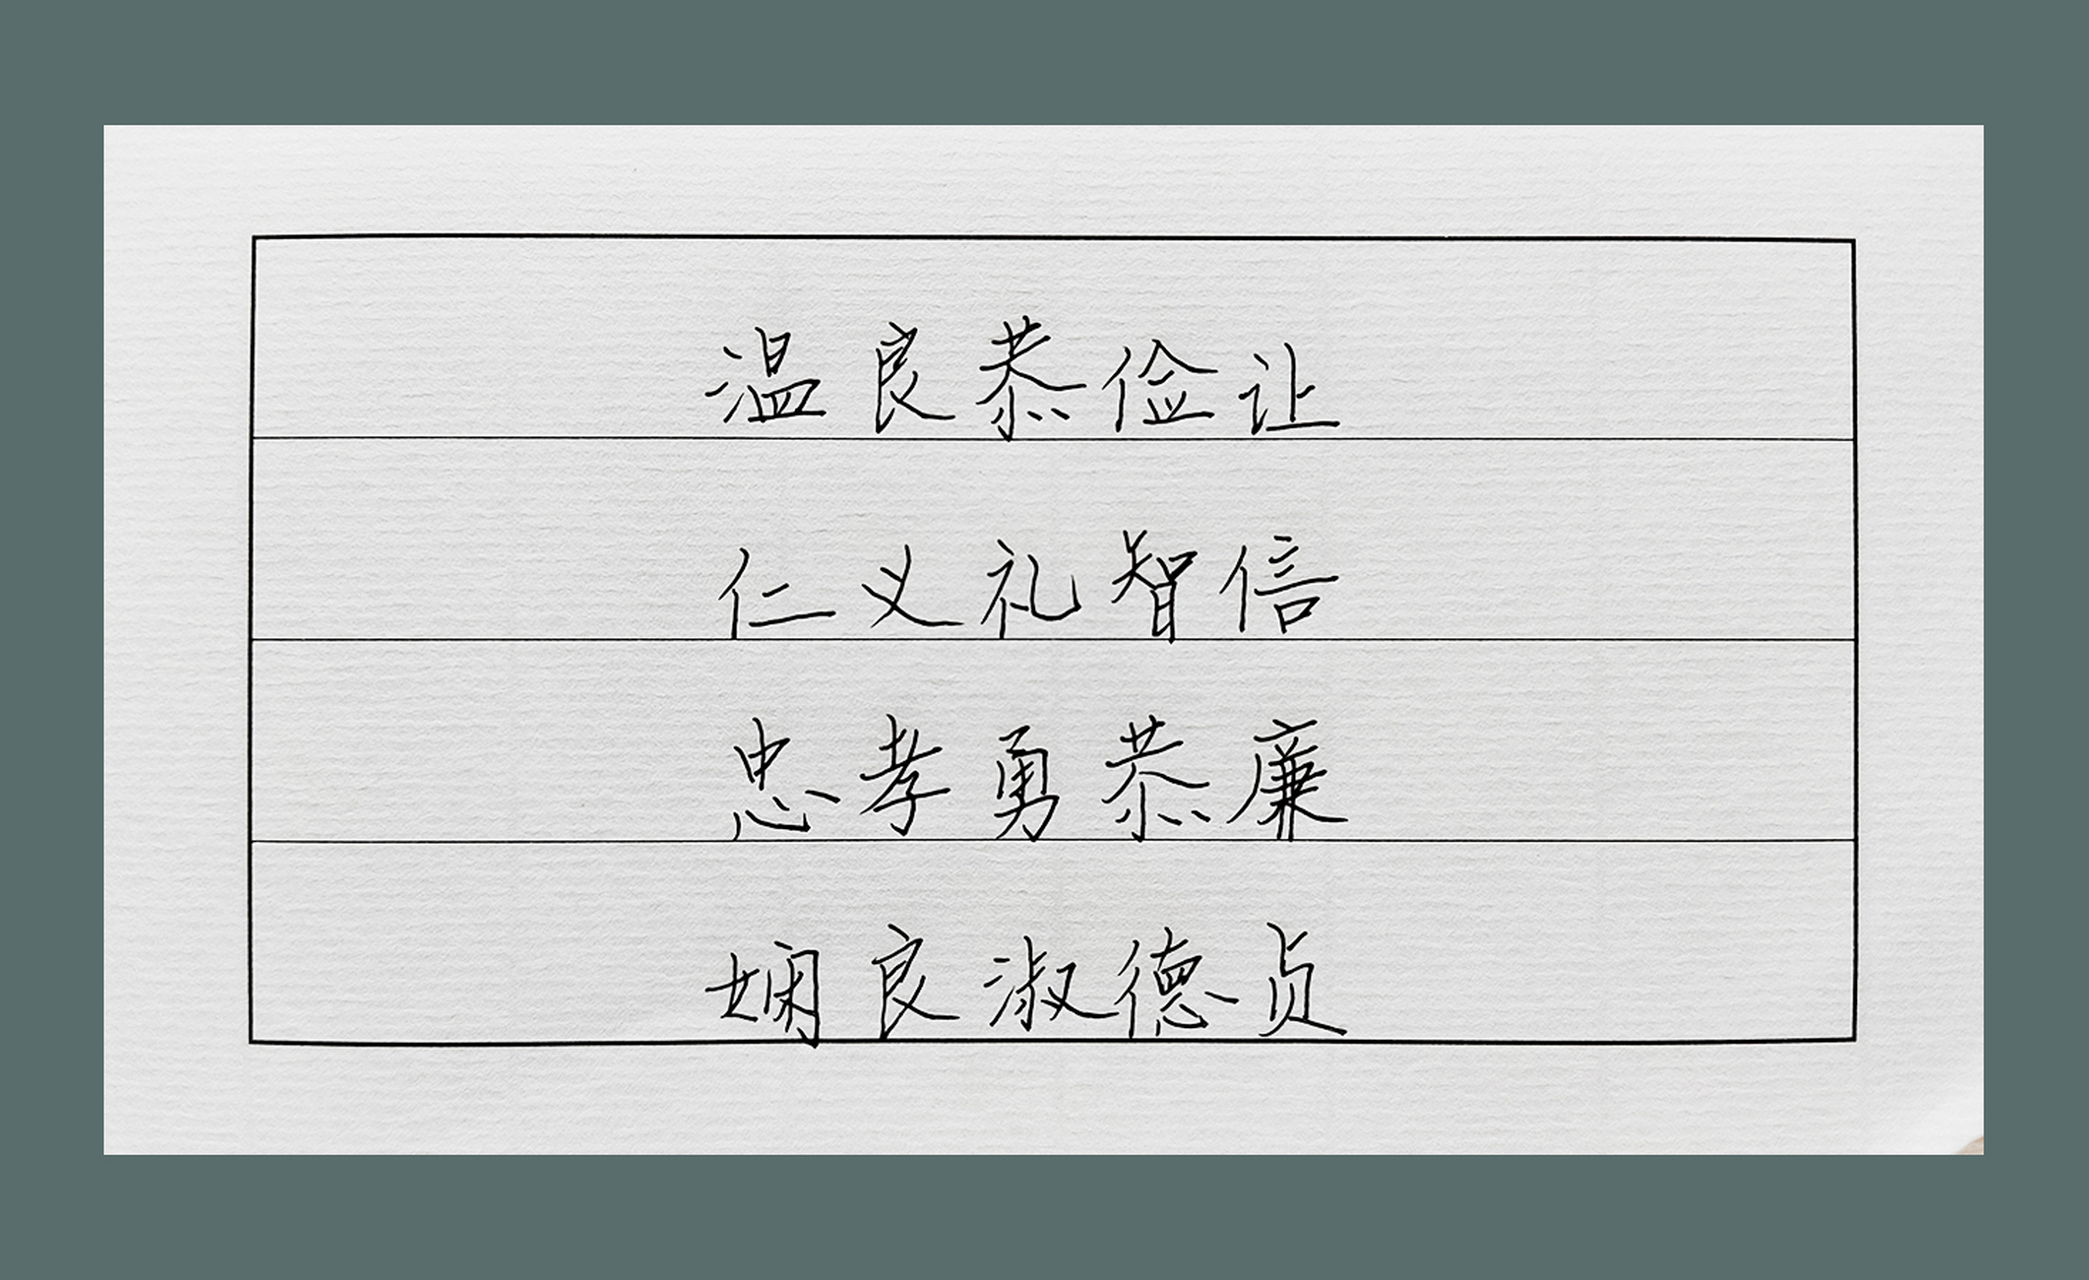 温良恭俭让
仁义礼智信
忠孝勇恭廉
娴良淑德贞